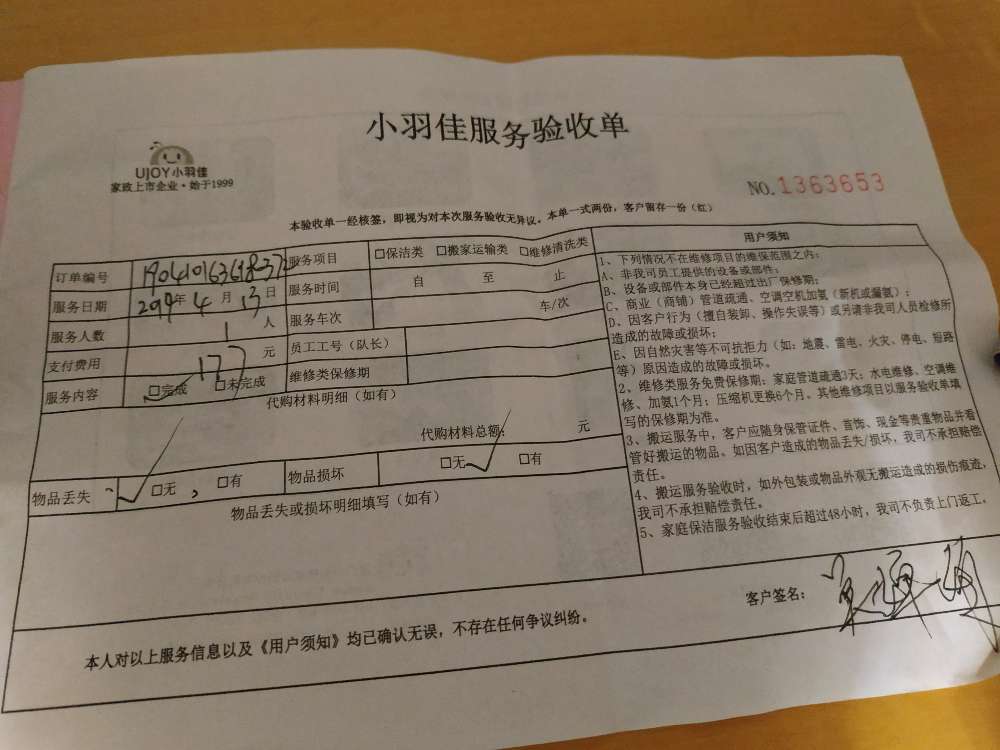 小羽佳服务验收单
UJOY小羽佳
家政上市企业·始于1999
NO.1363653
本验收单一经核签，即视为对本次服务验收无异议。本单一式两份，客户留存一份（红）
订单编号
服务项目 □保洁类 □搬家运输类 □维修清洗类
服务日期 年 4 月 13 日
服务时间 自 至 止
服务人数 1 人
服务车次 车/次
支付费用 177 元
员工工号（队长）
服务内容 □完成 □未完成
维修类保修期
代购材料明细（如有）
代购材料总额： 元
物品丢失 □无 □有
物品损坏 □无 □有
物品丢失或损坏明细填写（如有）
用户须知
1、下列情况不在维修项目的维保范围之内：
A、非我司员工提供的设备或部件；
B、设备或部件本身已经超过出厂保修期；
C、商业（商铺）管道疏通、空调空机加氨（新机或漏氨）；
D、因客户行为（擅自装卸、操作失误等）或另请非我司人员检修
造成的故障或损坏；
E、因自然灾害等不可抗拒力（如：地震、雷电、火灾、停电、短路
等）原因造成的故障或损坏。
2、维修类服务免费保修期：家庭管道疏通3天；水电维修、空调维
修、加氨1个月；压缩机更换6个月。其他维修项目以服务验收单填
写的保修期为准。
3、搬运服务中，客户应随身保管证件、首饰、现金等贵重物品并看
管好搬运的物品。如因客户造成的物品丢失/损坏，我司不承担赔偿
责任。
4、搬运服务验收时，如外包装或物品外观无搬运造成的损伤痕迹，
我司不承担赔偿责任。
5、家庭保洁服务验收结束后超过48小时，我司不负责上门返工。
客户签名：
本人对以上服务信息以及《用户须知》均已确认无误，不存在任何争议纠纷。